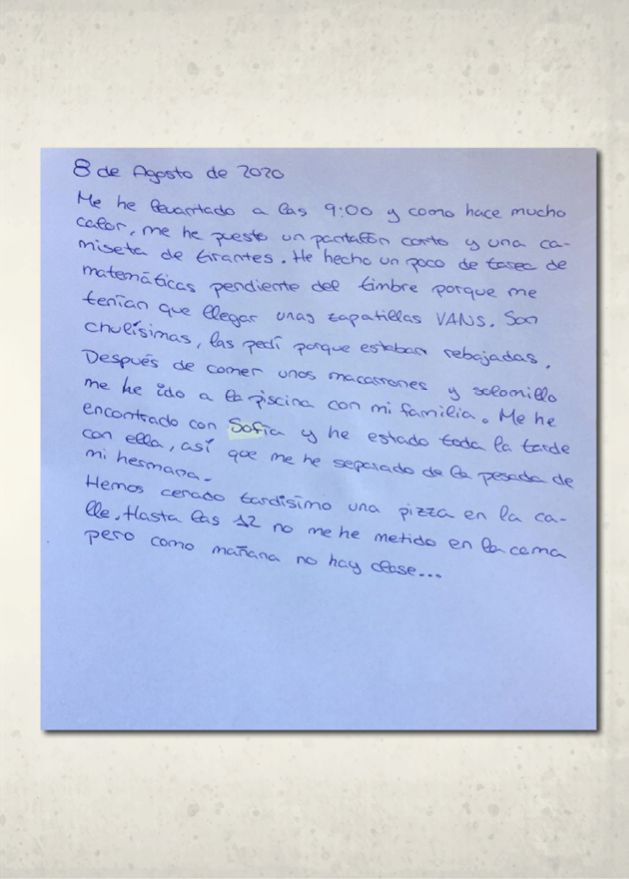 8 de Agosto de 2020
Me he levantado a las 9:00 y como hace mucho
calor, me he puesto un pantalón corto y una ca-
miseta de tirantes. He hecho un poco de tarea de
matemáticas pendiente del timbre porque me
tenían que llegar unas zapatillas VANS. Son
chulísimas, las pedí porque estaban rebajadas.
Después de comer unos macarrones y solomillo
me he ido a la piscina con mi familia. Me he
encontrado con Sofía y he estado toda la tarde
con ella, así que me he separado de la pesada de
mi hermana.
Hemos cenado tardísimo una pizza en la ca-
lle. Hasta las 12 no me he metido en la cama
pero como mañana no hay clase...